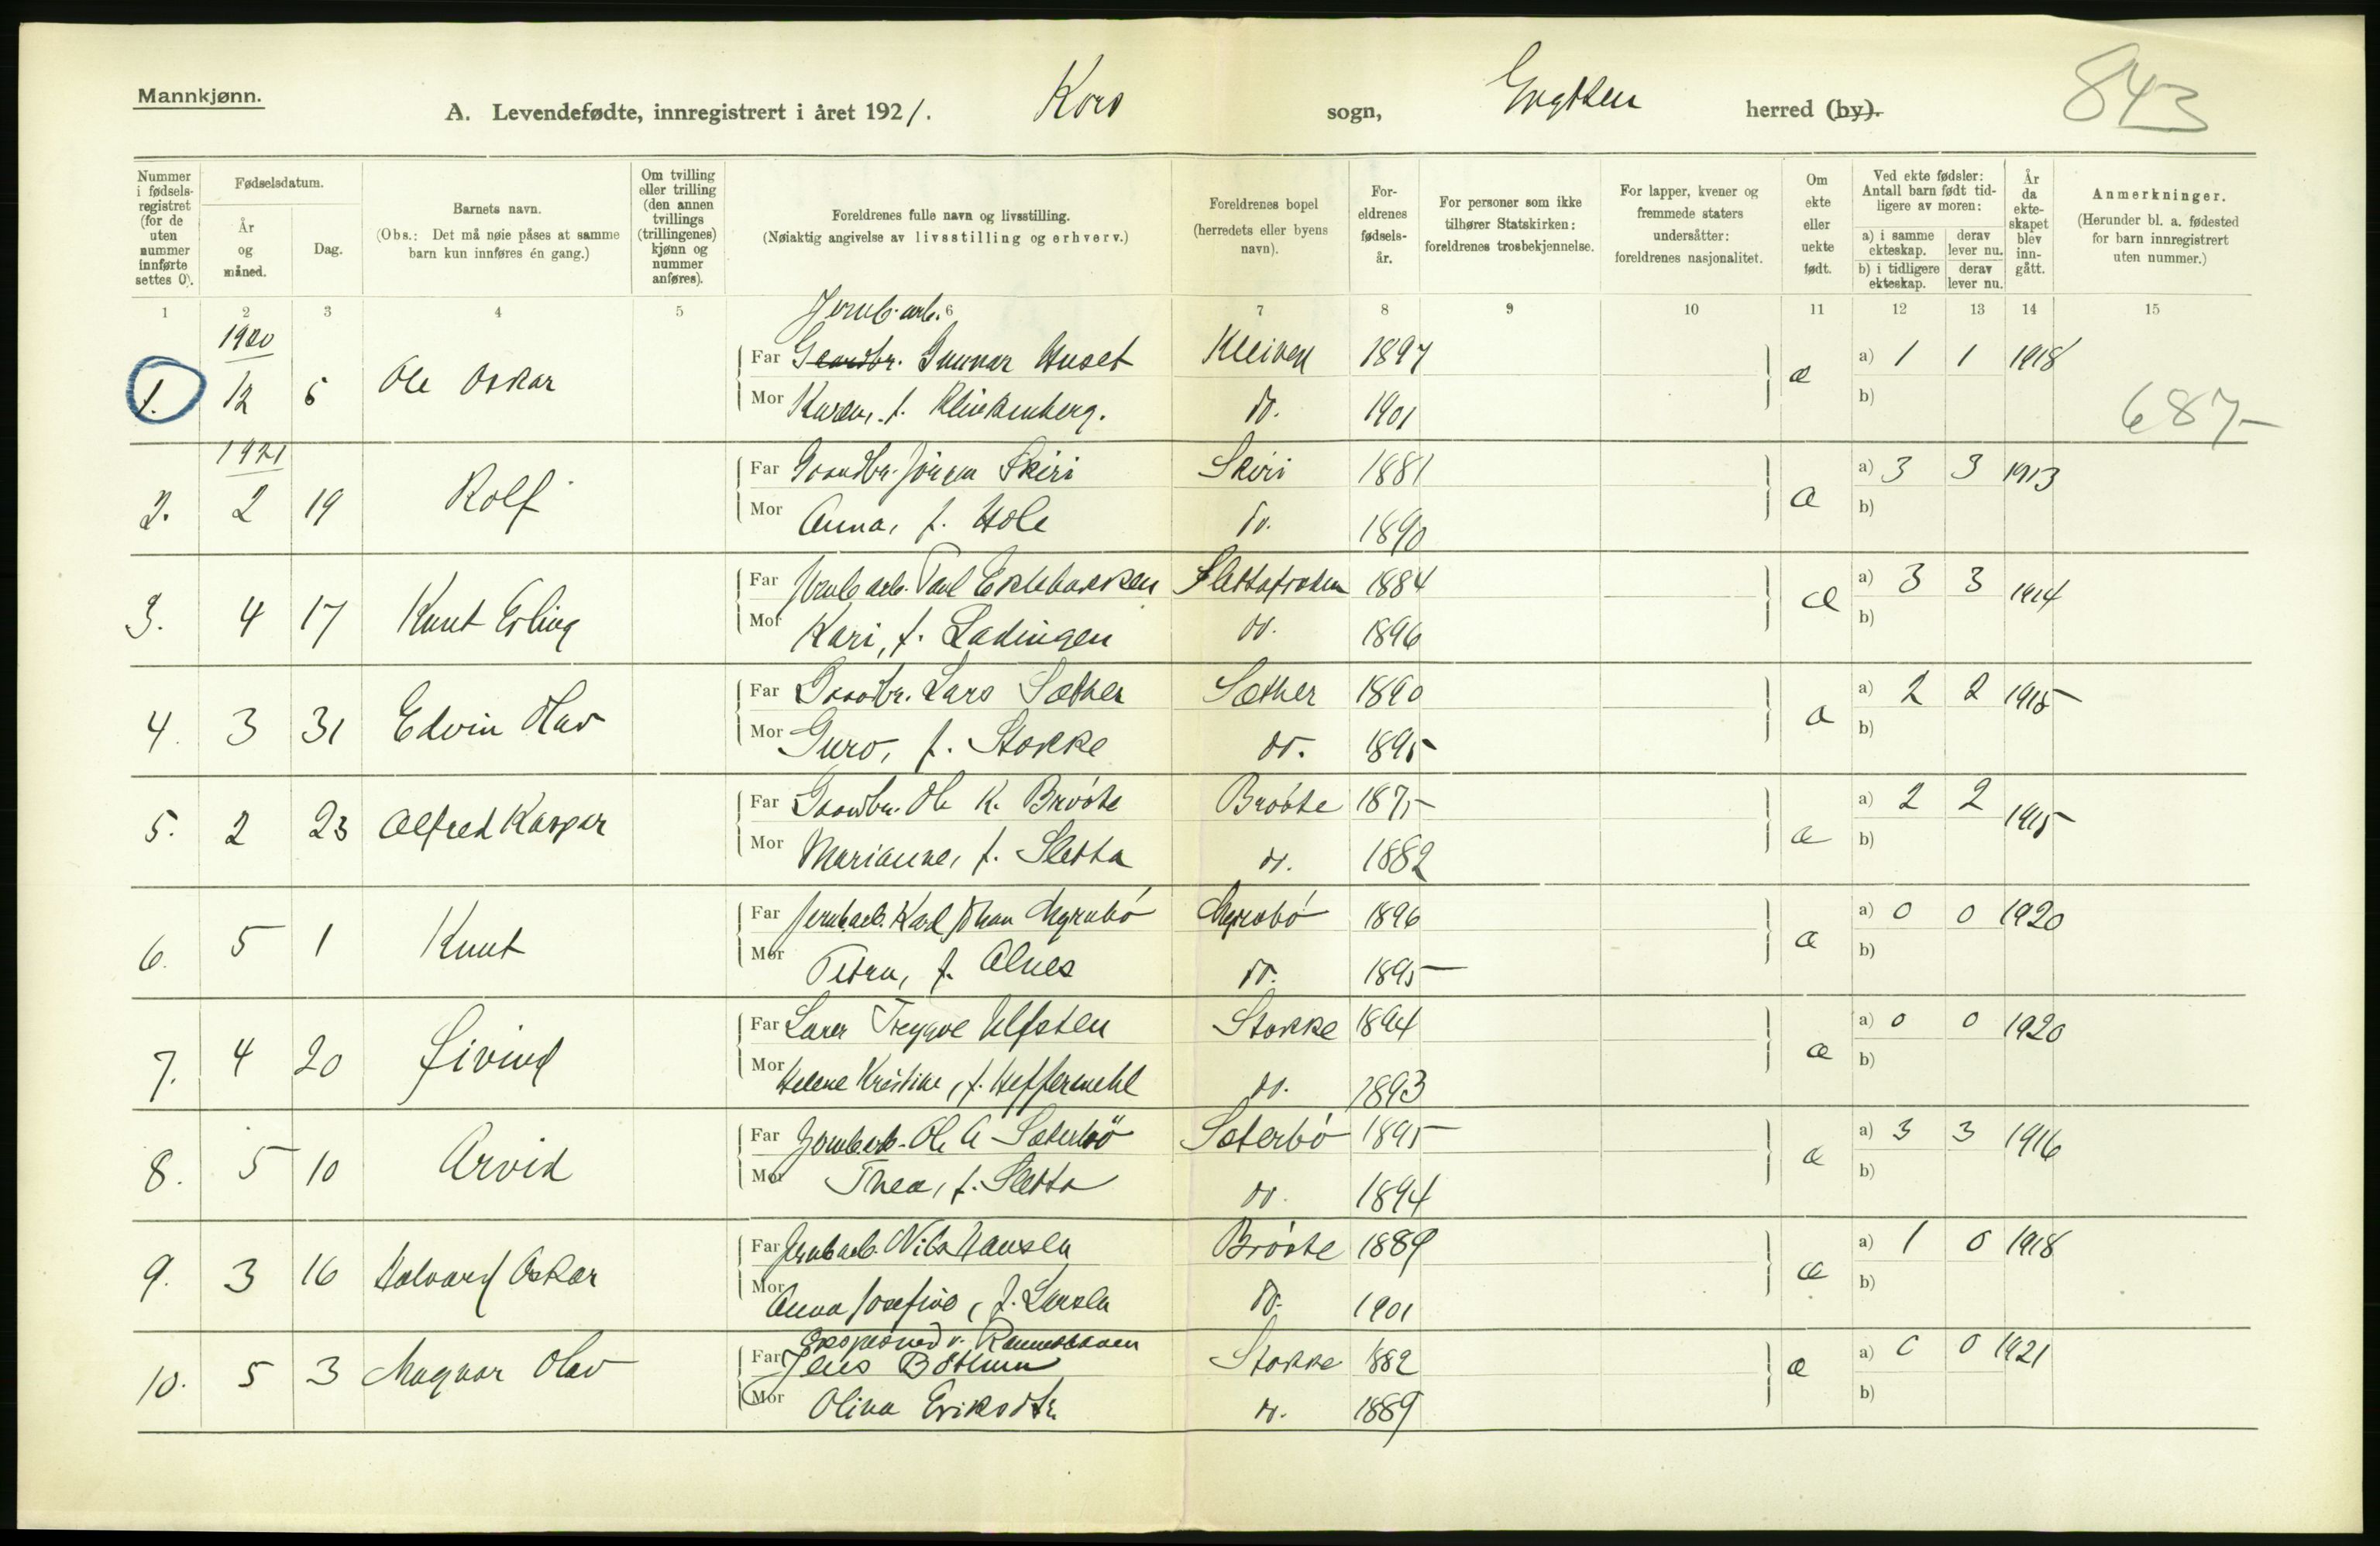 Mannkjønn.
A. Levendefødte, innregistrert i året 1921. Kors sogn, Grytten herred (by). 843
Nummer i fødselsregistret (for de uten nummer innførte settes 0).
Fødselsdatum.
År og måned.
Dag.
Barnets navn.
(Obs.: Det må nøie påses at samme barn kun innføres én gang.)
Om tvilling eller trilling (den annen tvillings (trillingenes) kjønn og nummer anføres).
Foreldrenes fulle navn og livsstilling.
(Nøiaktig angivelse av livsstilling og erhverv.)
Foreldrenes bopel (herredets eller byens navn).
Foreldrenes fødselsår.
For personer som ikke tilhører Statskirken: foreldrenes trosbekjennelse.
For lapper, kvener og fremmede staters undersåtter: foreldrenes nasjonalitet.
Om ekte eller uekte født.
Ved ekte fødsler: Antall barn født tidligere av moren:
a) i samme ekteskap. derav lever nu.
b) i tidligere ekteskap. derav lever nu.
År da ekteskapet blev inngått.
Anmerkninger.
(Herunder bl. a. fødested for barn innregistrert uten nummer.)
1 2 3 4 5 6 7 8 9 10 11 12 13 14 15
Jernb.arb.
1920
1. 12 5 Ole Oskar Far Gaardbr. Gunnar Huset Kleiven 1897 æ a) 1 1 1918
Mor Karen, f. Klinkenberg. do. 1901 b) 687-
1921
2. 2 19 Rolf Far Gaardbr. Jörgen Skiri Skiri 1881 æ a) 3 3 1913
Mor Anna, f. Hole do. 1890 b)
3. 4 17 Knut Erling Far Jernb.arb. Paul Eklebakken Slettafossen 1884 æ a) 3 3 1914
Mor Kari, f. Ladingen do. 1896 b)
4. 3 31 Edvin Olav Far Gaardbr. Lars Sæther Sæther 1890 æ a) 2 2 1915
Mor Guro, f. Stokke do. 1895 b)
5. 2 23 Alfred Kaspar Far Gaardbr. Ole K. Brøste Brøste 1875 æ a) 2 2 1915
Mor Marianne, f. Sletta do. 1882 b)
6. 5 1 Knut Far Jernb.arb. Karl Johan Myrabó Myrabó 1896 æ a) 0 0 1920
Mor Petra, f. Alnes do. 1895 b)
7. 4 20 Øivind Far Lærer Trygve Ulfsten Stokke 1894 æ a) 0 0 1920
Mor Helene Kristine, f. Heffermehl do. 1893 b)
8. 5 10 Arvid Far Jernb.arb. Ole A Sæterbö Sæterbó 1895 æ a) 3 3 1916
Mor Thea, f. Sletta do. 1894 b)
9. 3 16 Halvard Oskar Far Jernb.arb. Nils Hansen Brøste 1889 æ a) 1 0 1918
Mor Anna Josefine, f. Larsen do. 1901 b)
10. 5 3 Magnar Olav Far Jens Bøthun Stokke 1882 æ a) 0 0 1921
Mor Olina Eriksdtr. do. 1889 b)